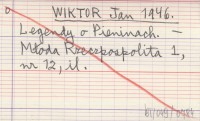 WIKTOR Jan 1946.
Legendy o Pieninach. –
Młoda Rzeczpospolita 1,
nr 12, il.